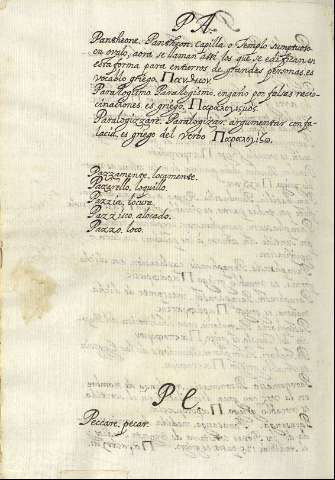 PA.
Pantheone. Pantheon, capilla, o Templo sumptuoso
en ovalo, aora se llaman assi los que se edifican en
esta forma para entierros de grandes personas, es
vocablo griego, Πανθεον
Paralogismo. Paralogismo, engaño por falsas racio-
cinaciones, es griego, Παραλογισμὸς.
Paralogizzare. Paralogizar, argumentar con fa-
lacia, es griego del verbo Παραλογιζω.
Pazzamente, locamente.
Pazzarello, loquillo.
Pazzia, locura.
Pazzisco, alocado.
Pazzo, loco.
Pe
Peccare, pecar.